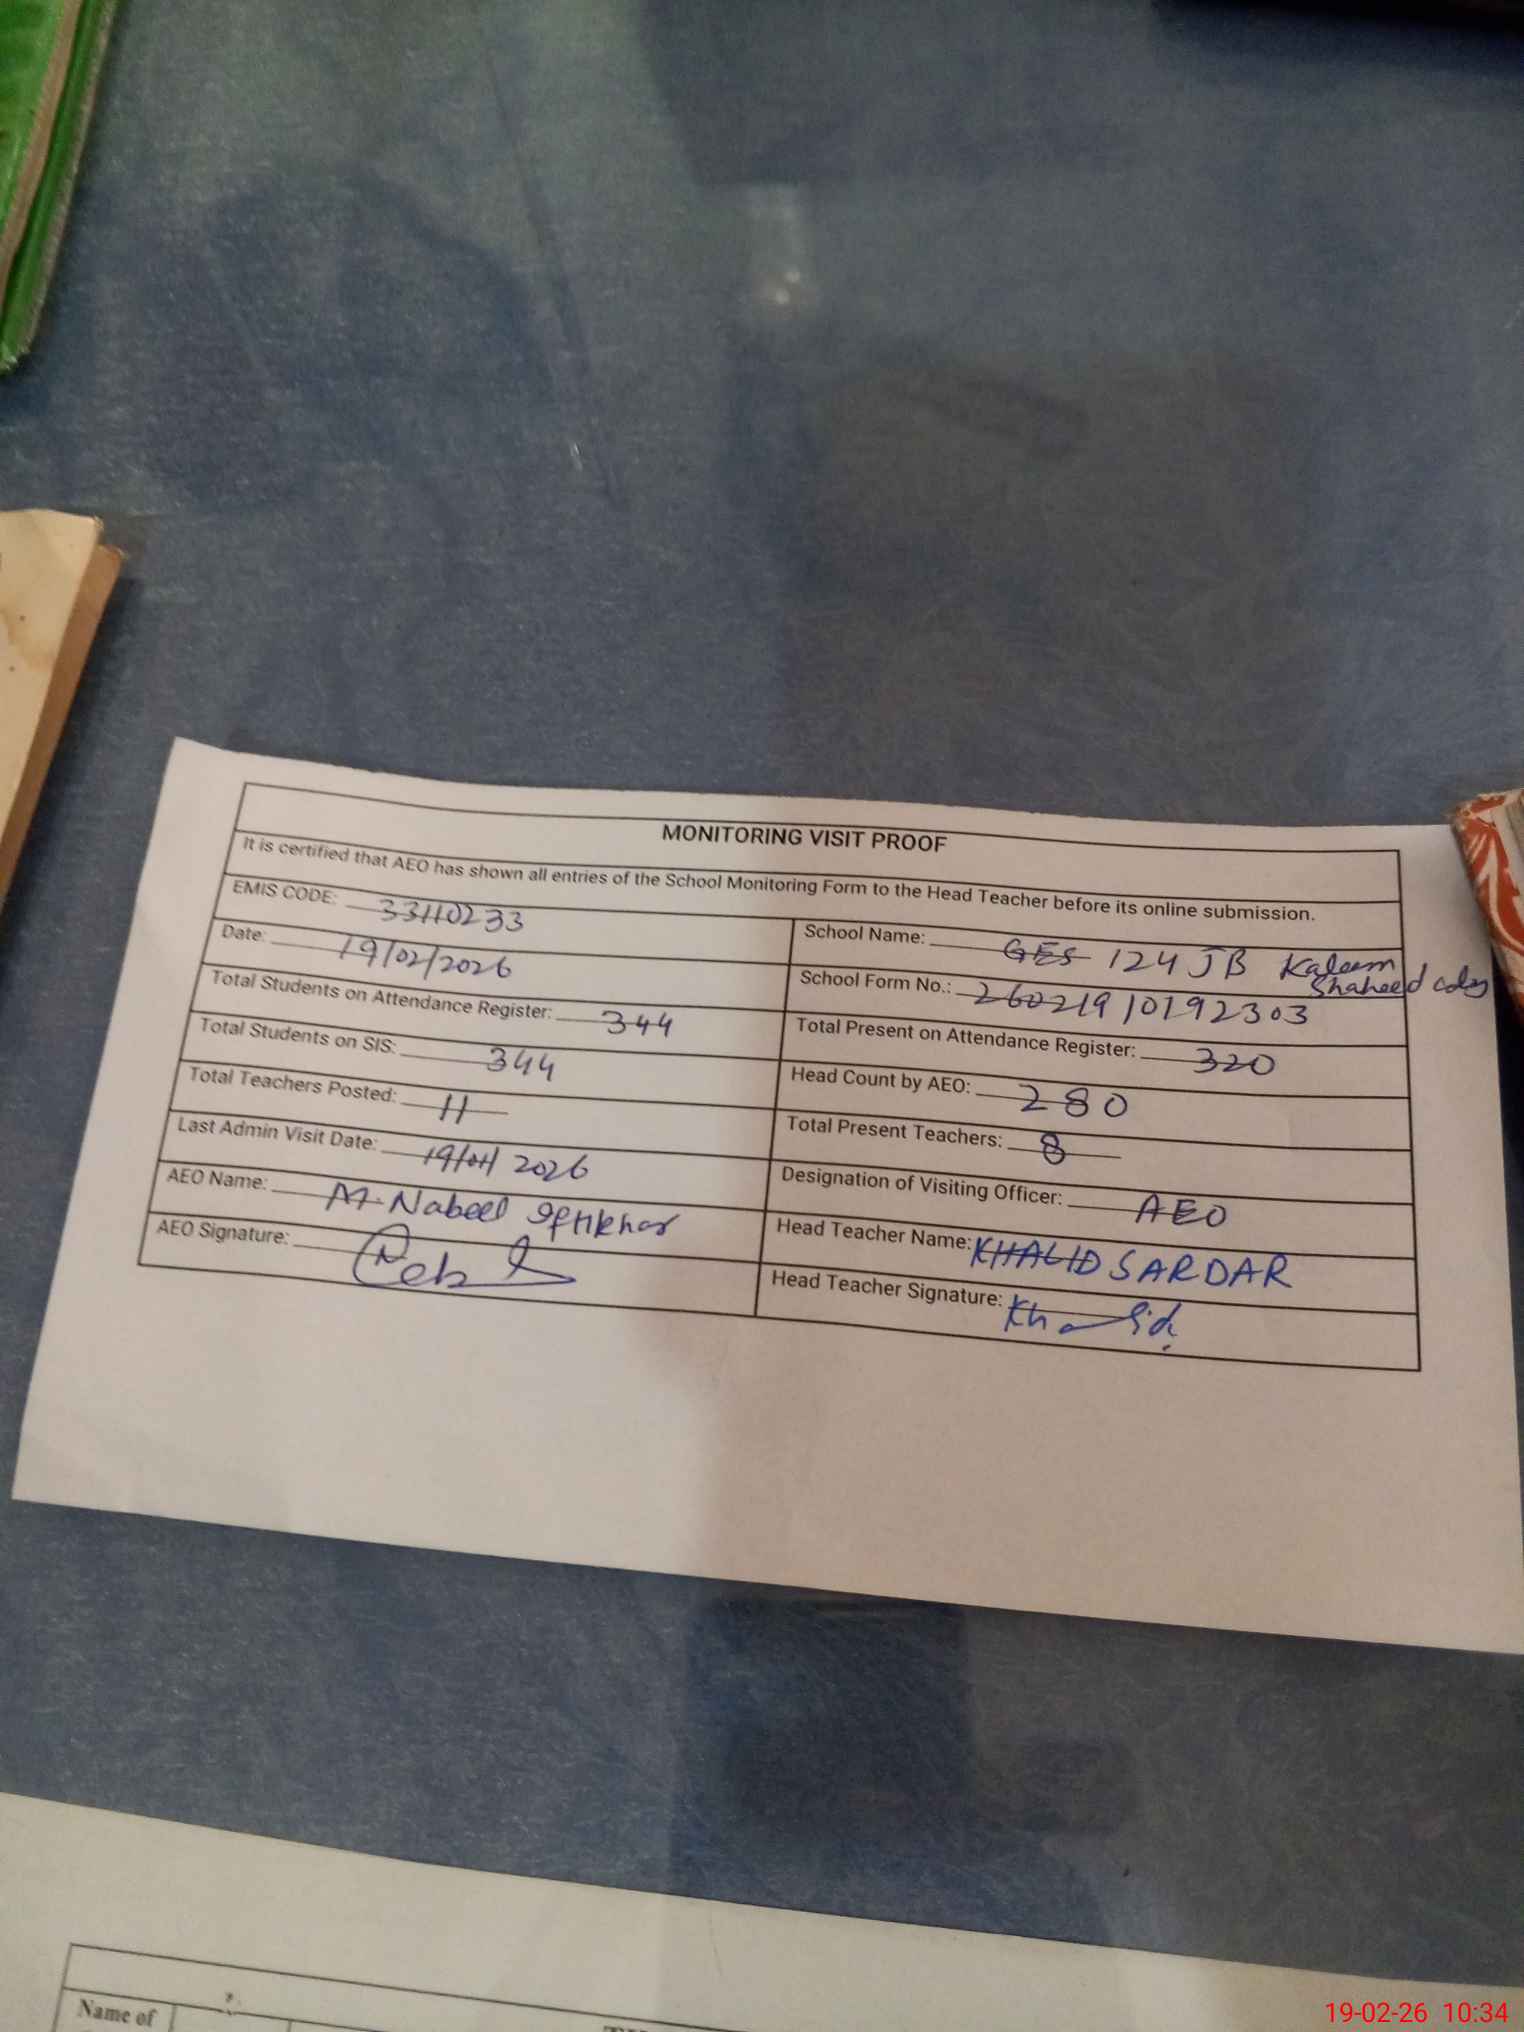 MONITORING VISIT PROOF
It is certified that AEO has shown all entries of the School Monitoring Form to the Head Teacher before its online submission.
EMIS CODE: 33110233
School Name: GES 124 JB Kaleem Shaheed
Date: 19/02/2026
School Form No.: 26021910192303
Total Students on Attendance Register: 344
Total Present on Attendance Register: 320
Total Students on SIS: 344
Head Count by AEO: 280
Total Teachers Posted: 11
Total Present Teachers: 8
Last Admin Visit Date: 19/01/2026
Designation of Visiting Officer: AEO
AEO Name: M. Nabeel Iftikhar
Head Teacher Name: KHALID SARDAR
AEO Signature:
Head Teacher Signature: Khalid
Name of
19-02-26 10:34